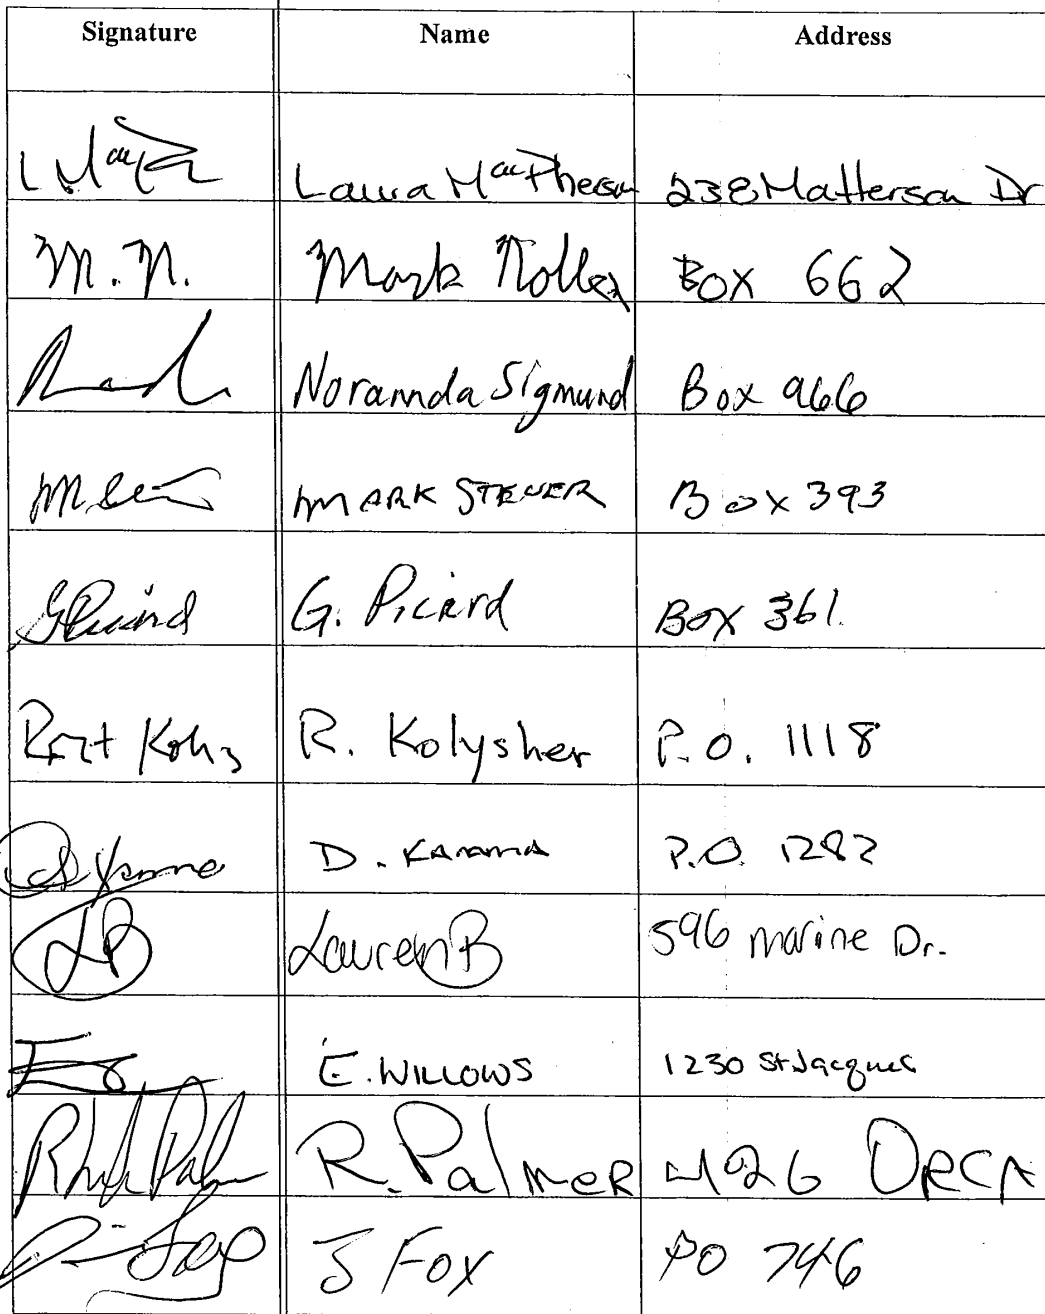 Signature Name Address
L MacP Laura MacPherson 238 Matterson Dr
M.N. Mark Box 662
Norannda Sigmund Box 966
MARK STEUER Box 393
GPicard G. Picard Box 361
R. Kolysher P.O. 1118
D. KAMMA P.O. 1282
LB Lauren B 596 marine Dr.
E. WILLOWS 1230 St Jacques
R. PalmeR 426 ORCA
J Fox PO 746